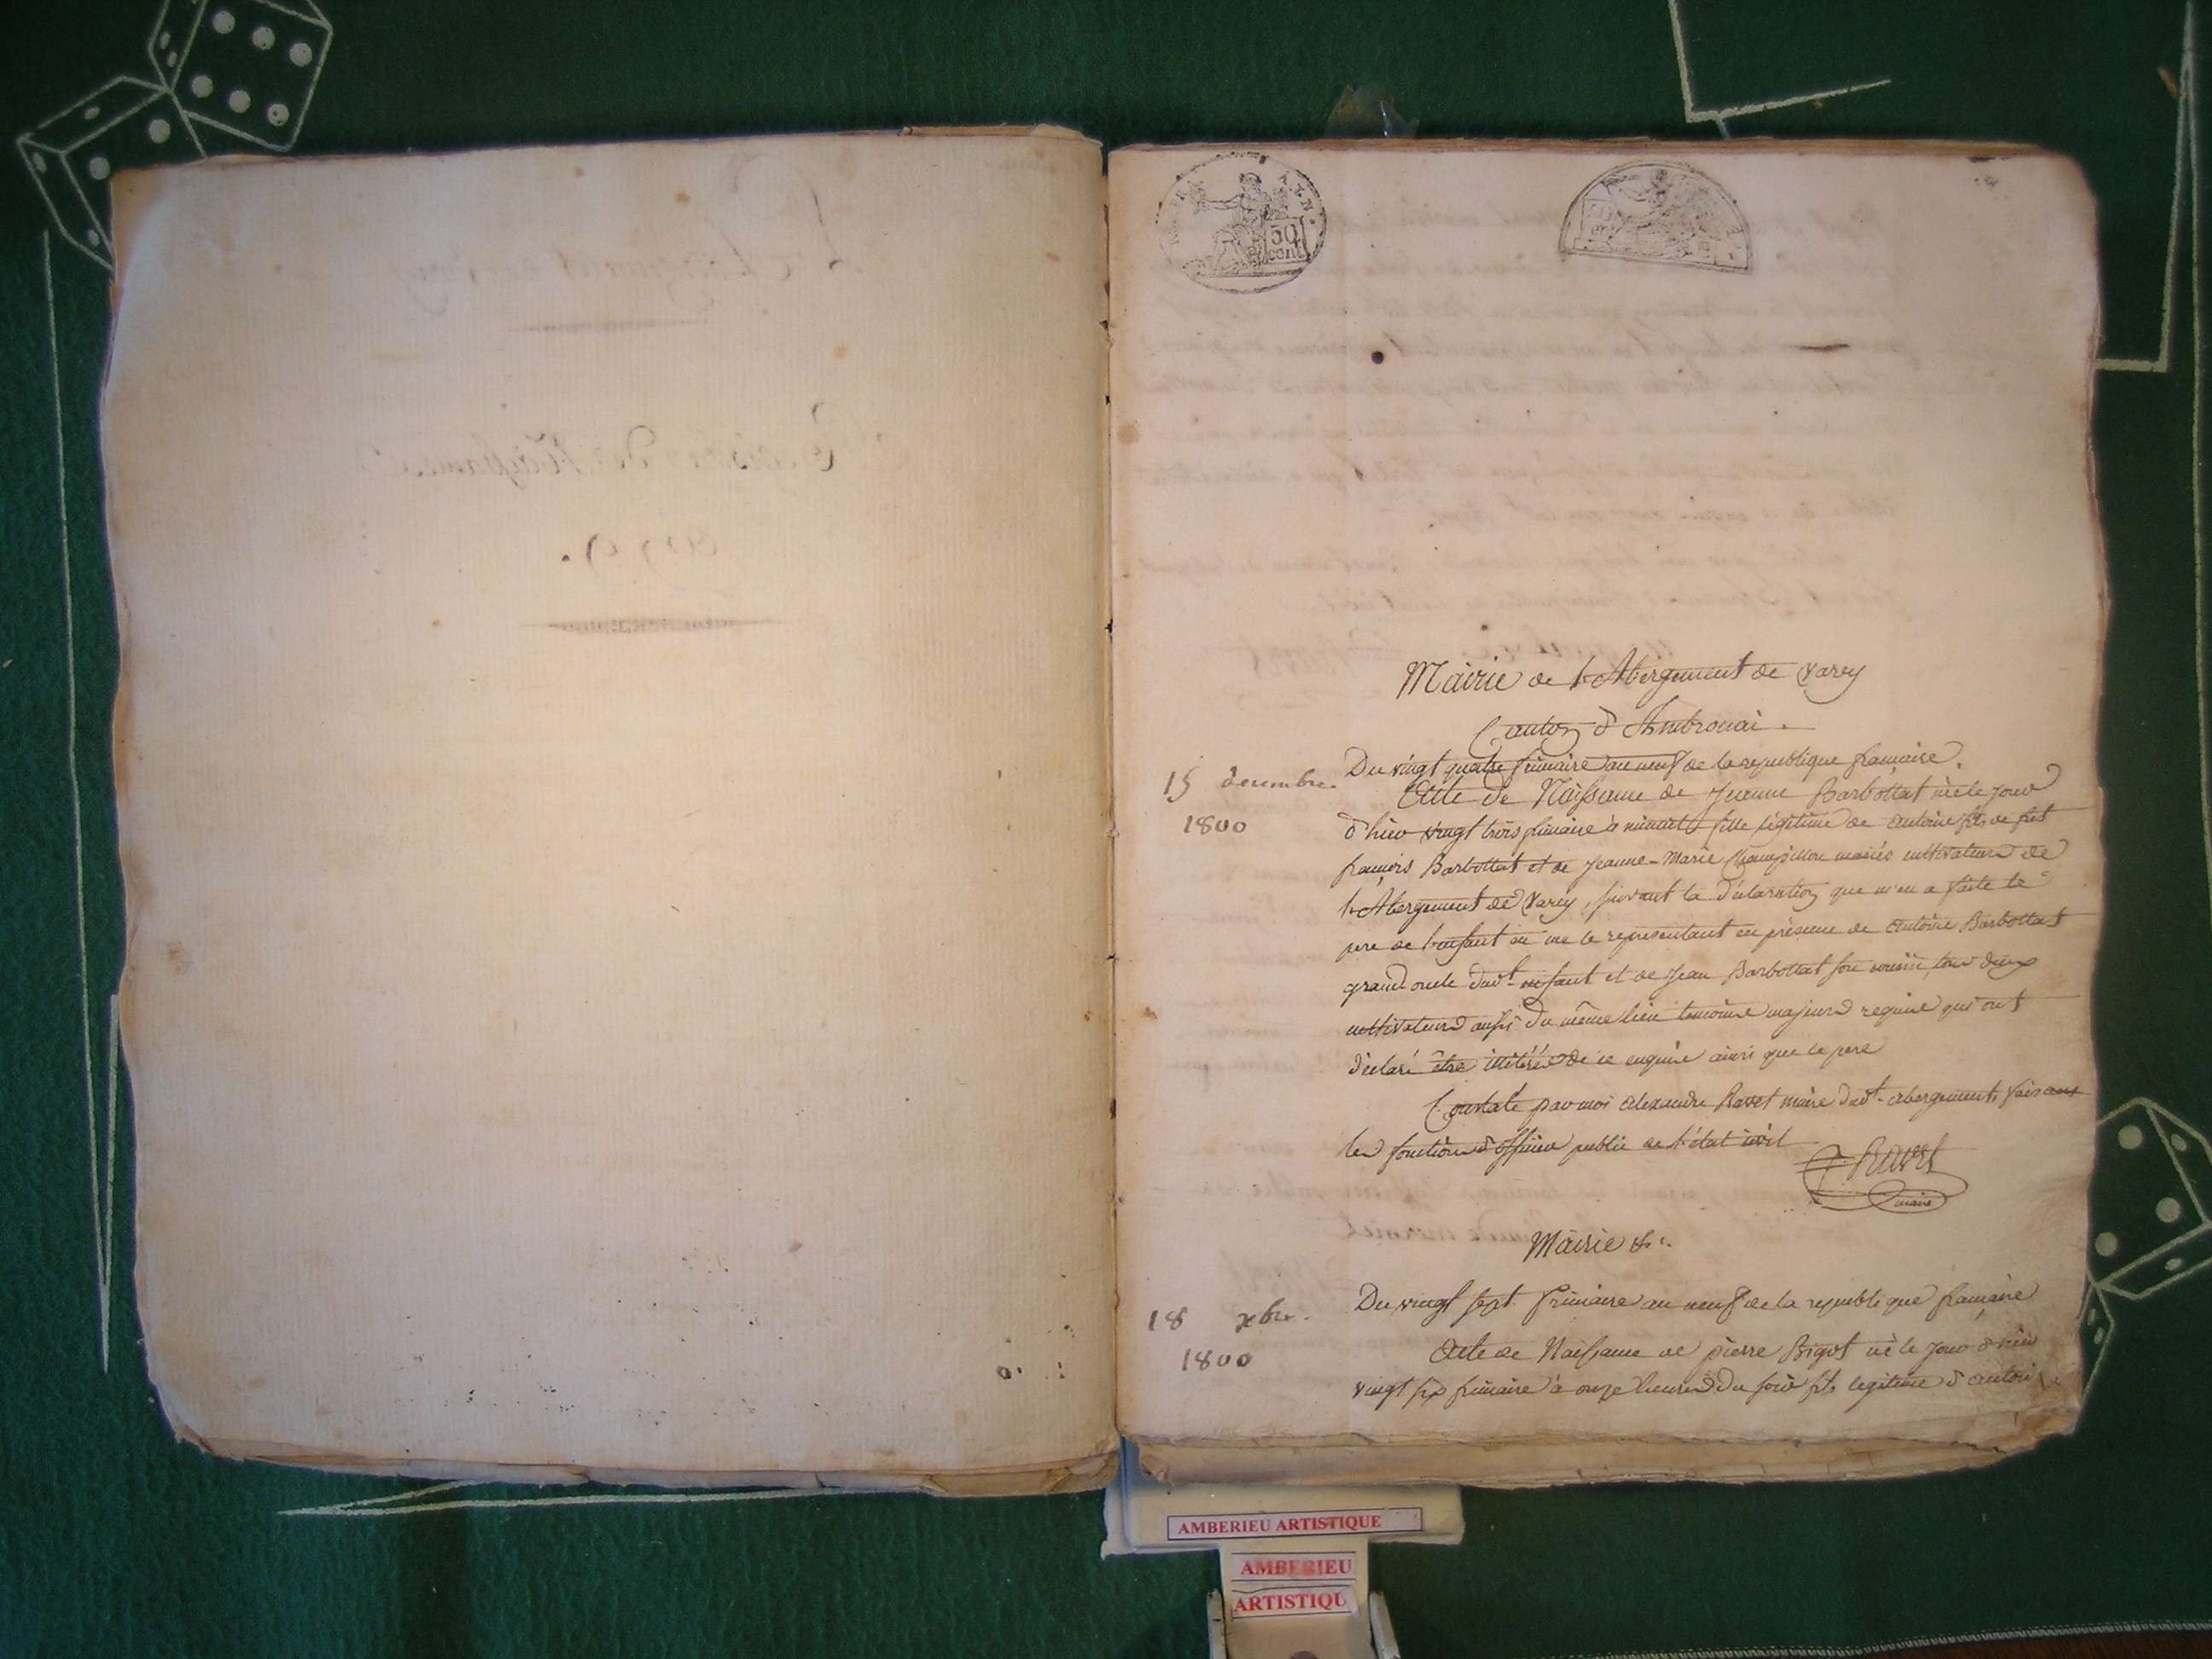 50
cent
Mairie de l'Abergement de varey
Canton d'Ambronai.
15 decembre
1800
Du vingt quatre frimaire an neuf de la republique française.
Acte de Naissance de Jeanne Barbottat née le jour
d'hier vingt trois frimaire à minuit fille légitime de antoine fils de
françois Barbottat et de Jeanne-Marie Champillon mariés cultivateurs de
l'Abergement de Varey, suivant la déclaration que m'en a faite le
pere de l'enfant en me le representant en présence de antoine Barbottat
grand oncle dud.t enfant et de jean Barbottat son cousin, tous deux
cultivateurs aussi du même lieu temoins majeurs requis qui ont
déclaré être illitérés de ce enquis ainsi que le pere
Constaté par moi alexandre Ravet maire dud.t abergement, faisant
les fonctions d'officier public de l'état civil
Ravet
maire
Mairie &c.
18 xbre.
1800
Du vingt sept frimaire an neuf de la republique française
Acte de Naissance de pierre Bigot né le jour d'hier
vingt six frimaire à onze heures du soir fils legitime d'antoine
AMBERIEU ARTISTIQUE
AMBERIEU
ARTISTIQU